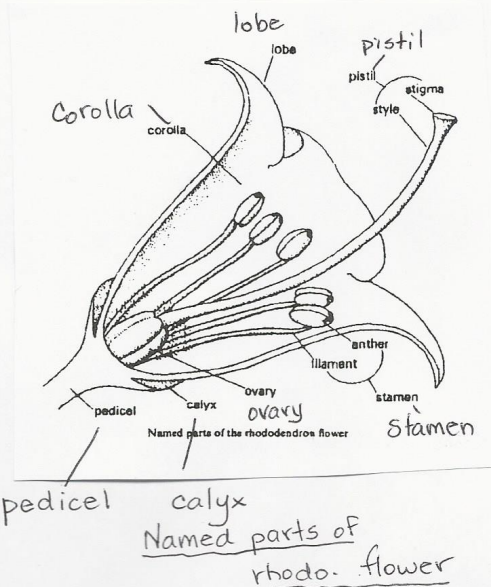 lobe
lobe
pistil
pistil
stigma
style
Corolla
corolla
anther
filament
stamen
stamen
ovary
ovary
calyx
pedicel
Named parts of the rhododendron flower
pedicel
calyx
Named parts of
rhodo. flower